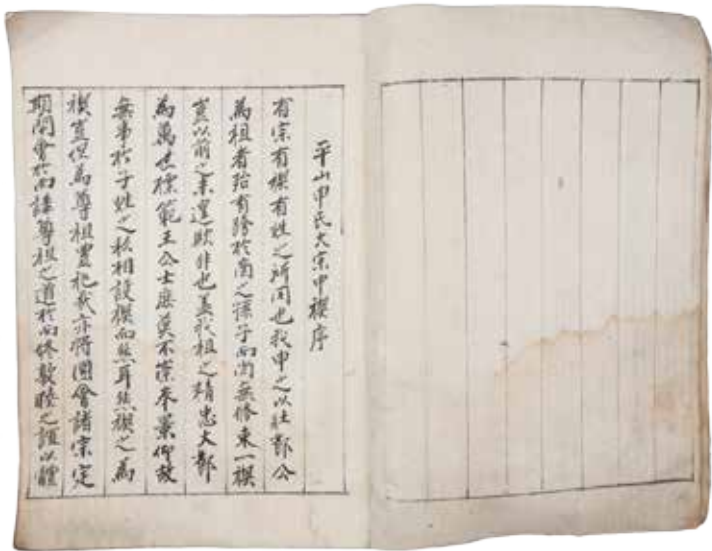 平山申氏大宗中稧序
有宗有稧有姓之所同也我申之以壯節公
為祖者殆有跨於商之孫子而尚無修束一稧
豈以前之未遑歟非也盖我祖之精忠大節
為萬世標範王公士庶莫不崇奉景仰故
無事於子姓之私相設稧而然耳然稧之為
稧豈但為尊祖置祀哉亦将團會諸宗定
期開會於而講尊祖之道於而修敦睦之誼以體